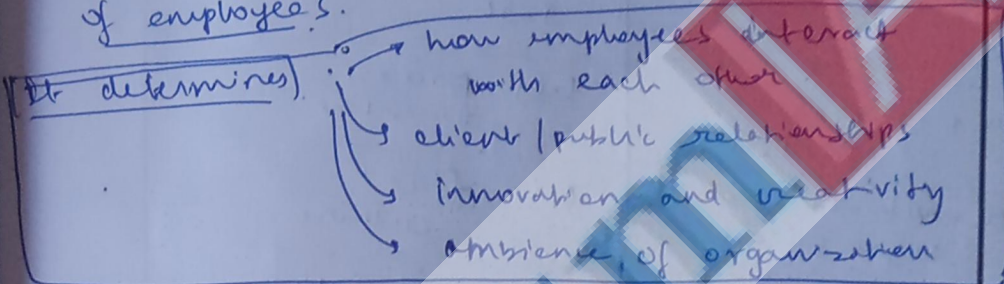 of employees.
It determines
how employees interact
with each other
client / public relationships
innovation and creativity
ambience of organization